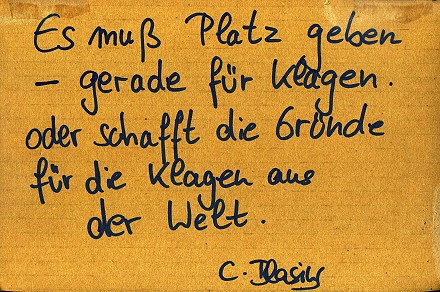 Es muß Platz geben
– gerade für Klagen.
oder schafft die Gründe
für die Klagen aus
der Welt.
C.